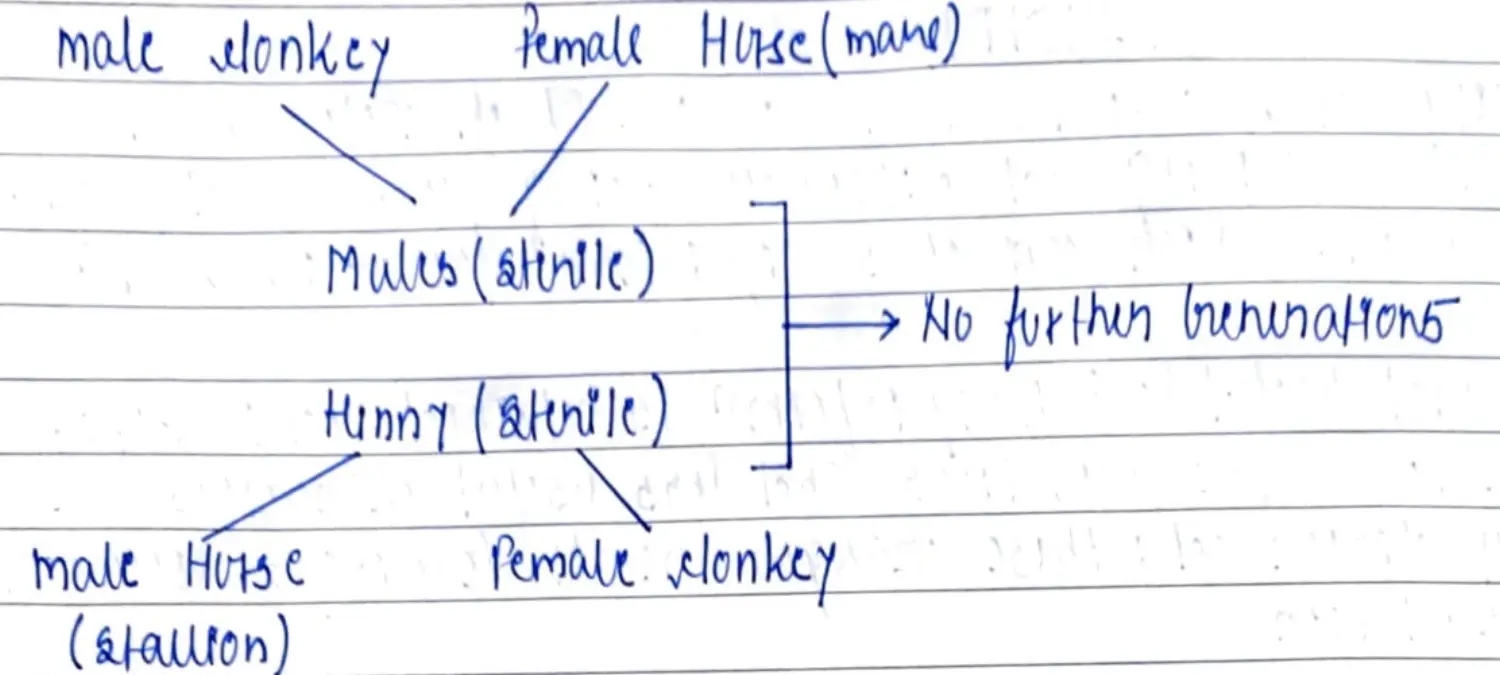 male donkey Female Horse (mare)
Mules (sterile)
→ No further Generations
Hinny (sterile)
male Horse Female donkey
(stallion)